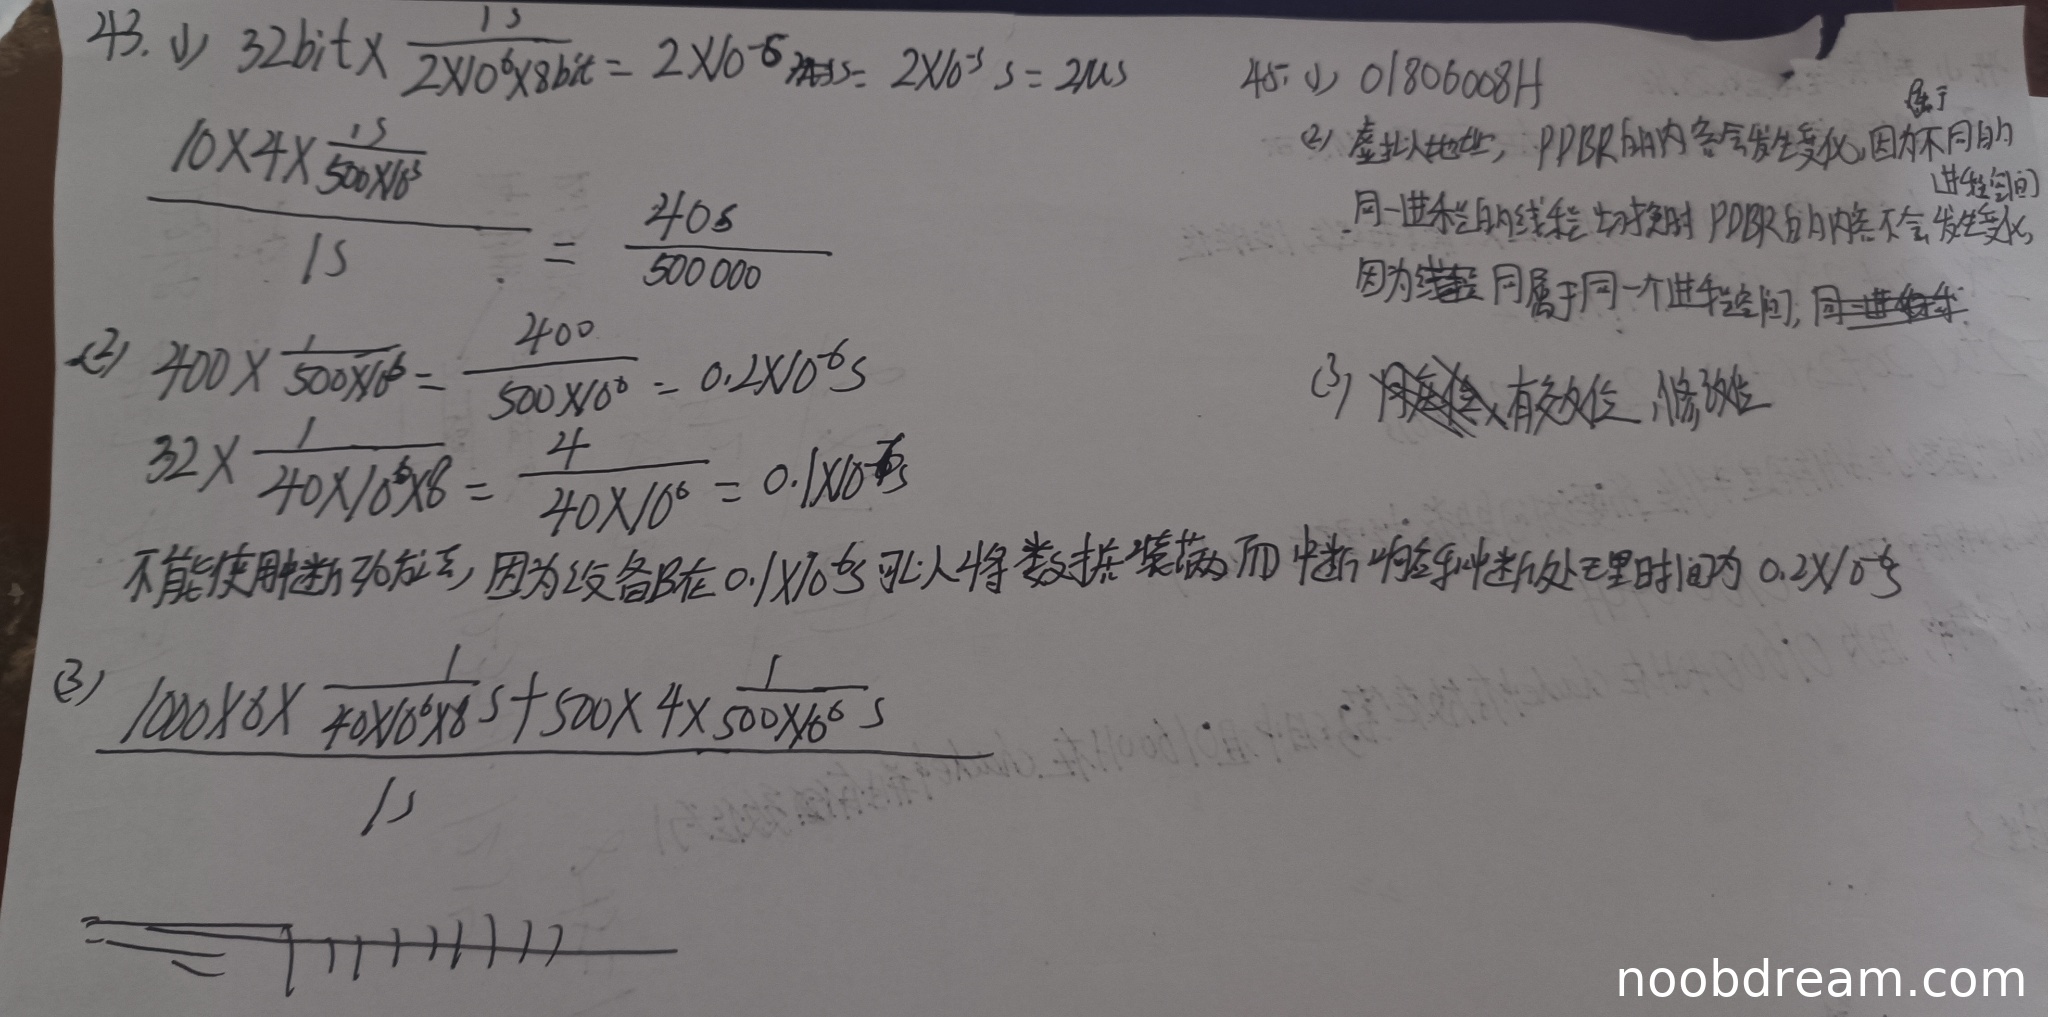 43. (1) 32bit × 1s / 2×10⁶×8bit = 2×10⁻⁶ s = 2×10⁻⁵ s = 2us
10×4× 1s / 500×10⁶ / 1s = 40s / 500000
(2) 400 × 1 / 500×10⁶ = 400 / 500×10⁶ = 0.2×10⁻⁶s
32 × 1 / 40×10⁶×8 = 4 / 40×10⁶ = 0.1×10⁻⁶s
不能使用中断方式, 因为设备B在0.1×10⁻⁶s可以将数据装满而中断响应和中断处理时间为0.2×10⁻⁶s
(3) 1000×8× 1 / 40×10⁶×8 s + 500×4× 1 / 500×10⁶ s / 1s
45. (1) 01806008H
(2) 虚拟地址, PDBR的内容会发生变化,因为属于不同的进程空间
同一进程的线程切换时PDBR的内容不会发生变化
因为同属于同一个进程空间,
(3) 有效位、修改位
noobdream.com